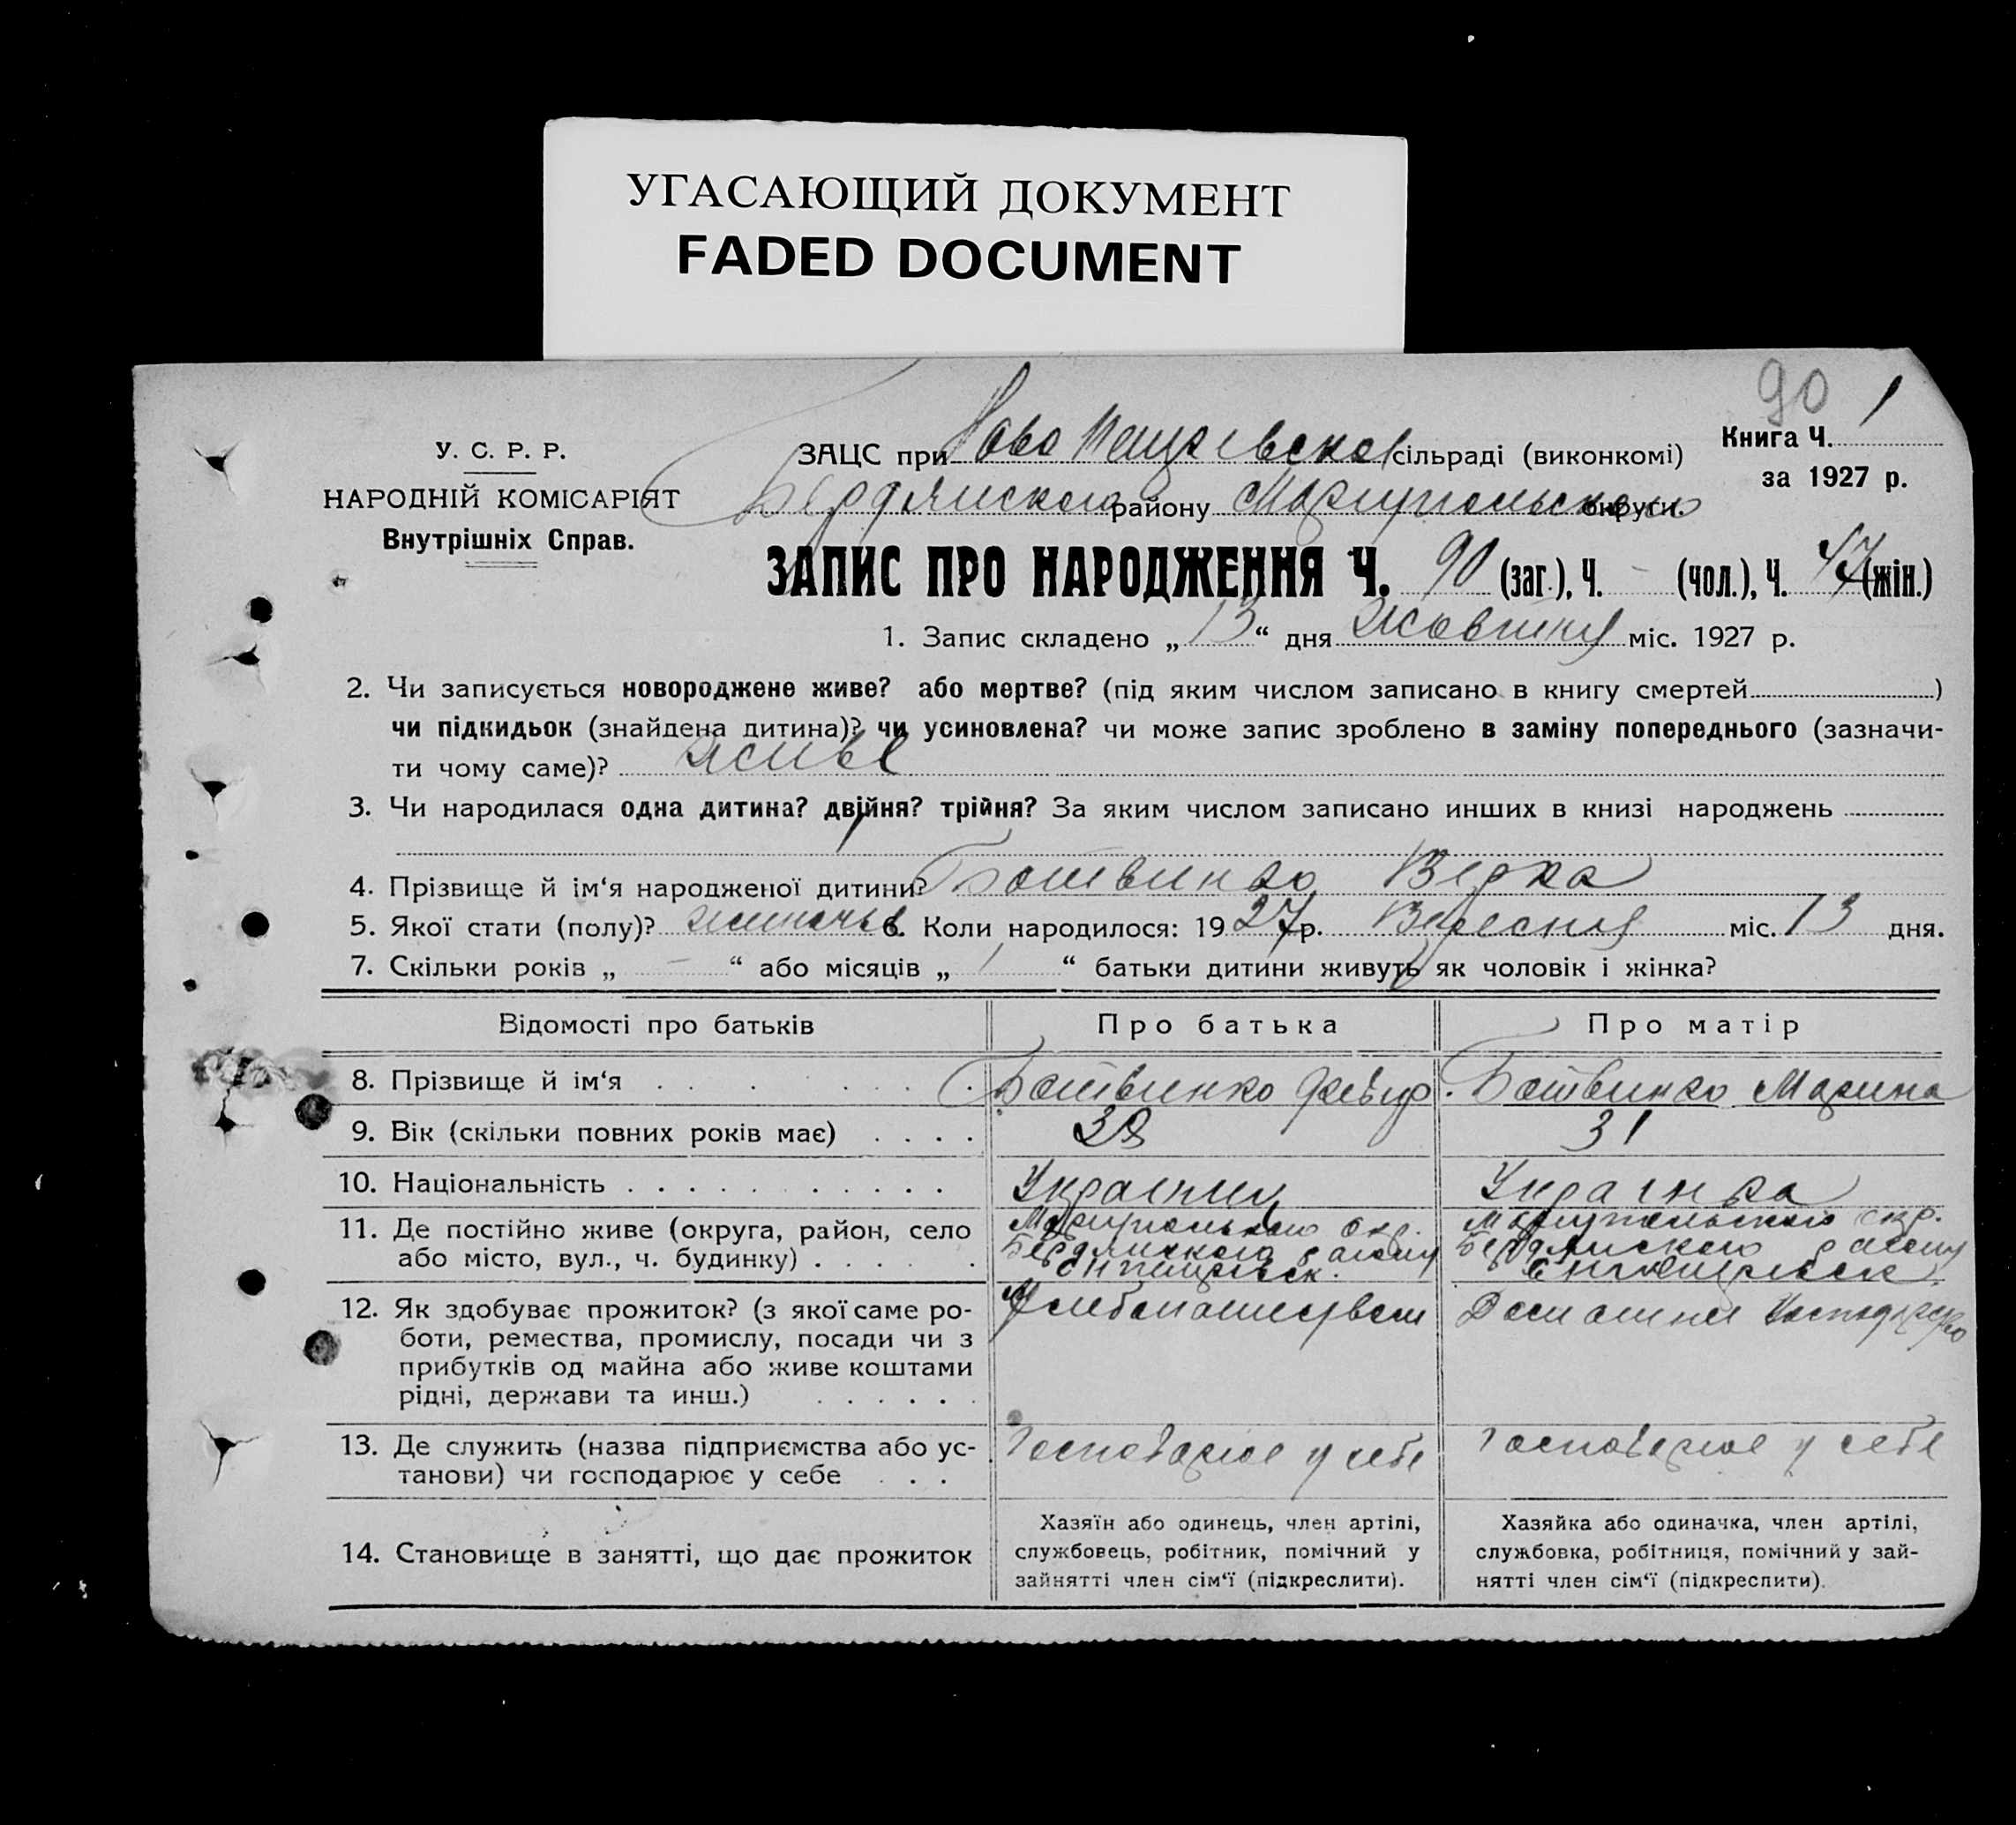 УГАСАЮЩИЙ ДОКУМЕНТ
FADED DOCUMENT
90 1
У. С. Р. Р.
НАРОДНІЙ КОМІСАРІЯТ
Внутрішніх Справ.
ЗАЦС при Ново сільраді (виконкомі)
Бердянского району Мариупольского округи.
Книга Ч.
за 1927 р.
ЗАПИС ПРО НАРОДЖЕННЯ Ч. 90 (заг.), Ч. - (чол.), Ч. 47 (жін.)
1. Запис складено „ 13 “ дня жовтня міс. 1927 р.
2. Чи записується новороджене живе? або мертве? (під яким числом записано в книгу смертей )
чи підкидьок (знайдена дитина)? чи усиновлена? чи може запис зроблено в заміну попереднього (зазначи-
ти чому саме)? живе
3. Чи народилася одна дитина? двійня? трійня? За яким числом записано инших в книзі народжень
1
4. Прізвище й ім‘я народженої дитини? Ботвинко Вера
5. Якої стати (полу)? жиноча 6. Коли народилося: 1927 р. Вересня міс. 13 дня.
7. Скільки років „ - “ або місяців „ “ батьки дитини живуть як чоловік і жінка?
Відомості про батьків Про батька Про матір
8. Прізвище й ім‘я Ботвинко Ботвинко Марина
9. Вік (скільки повних років має) 38 31
10. Національність Украінец Украінка
11. Де постійно живе (округа, район, село Мариупольского окр. Мариупольского окр.
або місто, вул., ч. будинку) Бердянского району Бердянского району
12. Як здобуває прожиток? (з якої саме ро- Хлебопашеством Домашнее
боти, ремества, промислу, посади чи з
прибутків од майна або живе коштами
рідні, держави та инш.)
13. Де служить (назва підприємства або ус- Господарює у себе Господарює у себе
танови) чи господарює у себе
14. Становище в занятті, що дає прожиток
Хазяїн або одинець, член артілі,
службовець, робітник, помічний у
зайнятті член сім‘ї (підкреслити).
Хазяйка або одиначка, член артілі,
службовка, робітниця, помічний у зай-
нятті член сім‘ї (підкреслити).